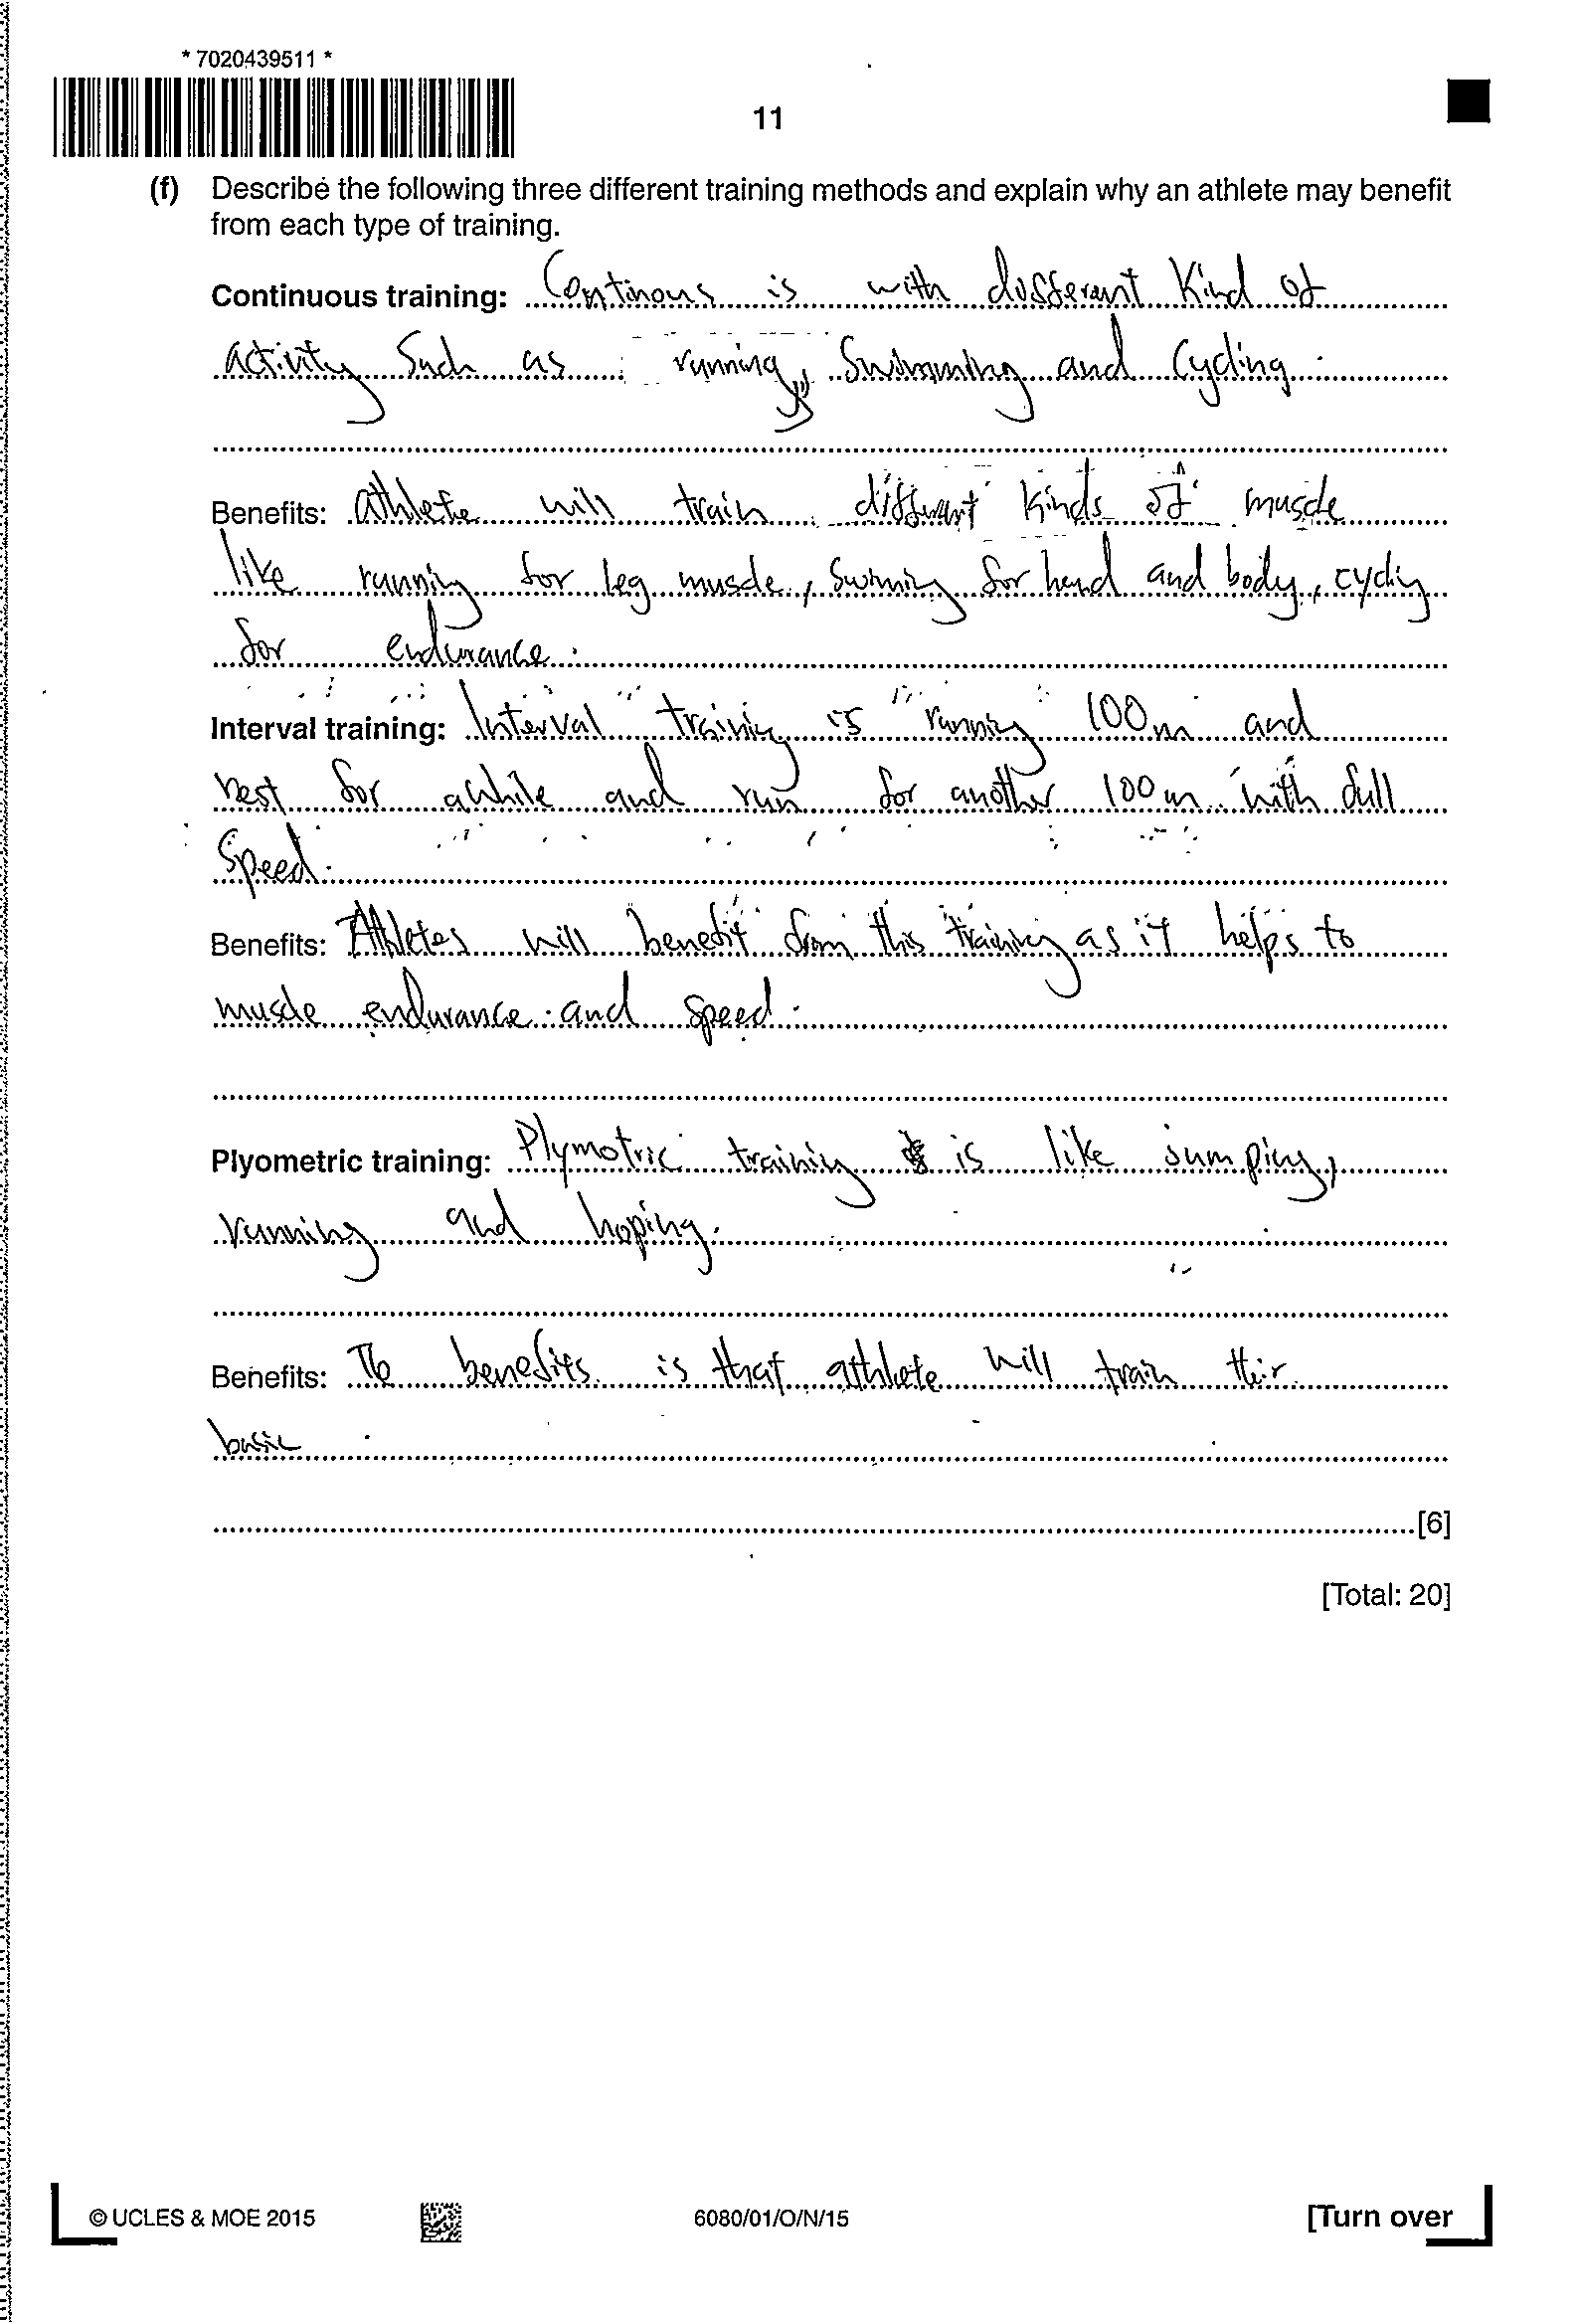 * 7020439511 *
11
(f) Describe the following three different training methods and explain why an athlete may benefit
from each type of training.
Continuous training: Continous is with different Kind of
activity Such as running, Swimming and Cycling.
Benefits: athlete will train different kinds of muscle
like running for leg muscle, swiming for hand and body, cycling
for endurance.
Interval training: Interval training is running 100m and
rest for awhile and run for another 100m with full
Speed.
Benefits: Athletes will benefit from this training as it helps to
muscle endurance and speed.
Plyometric training: Plymotric training is like jumping,
running and hoping.
Benefits: The benefits is that athlete will train their
basic
[6]
[Total: 20]
© UCLES & MOE 2015
6080/01/O/N/15
[Turn over